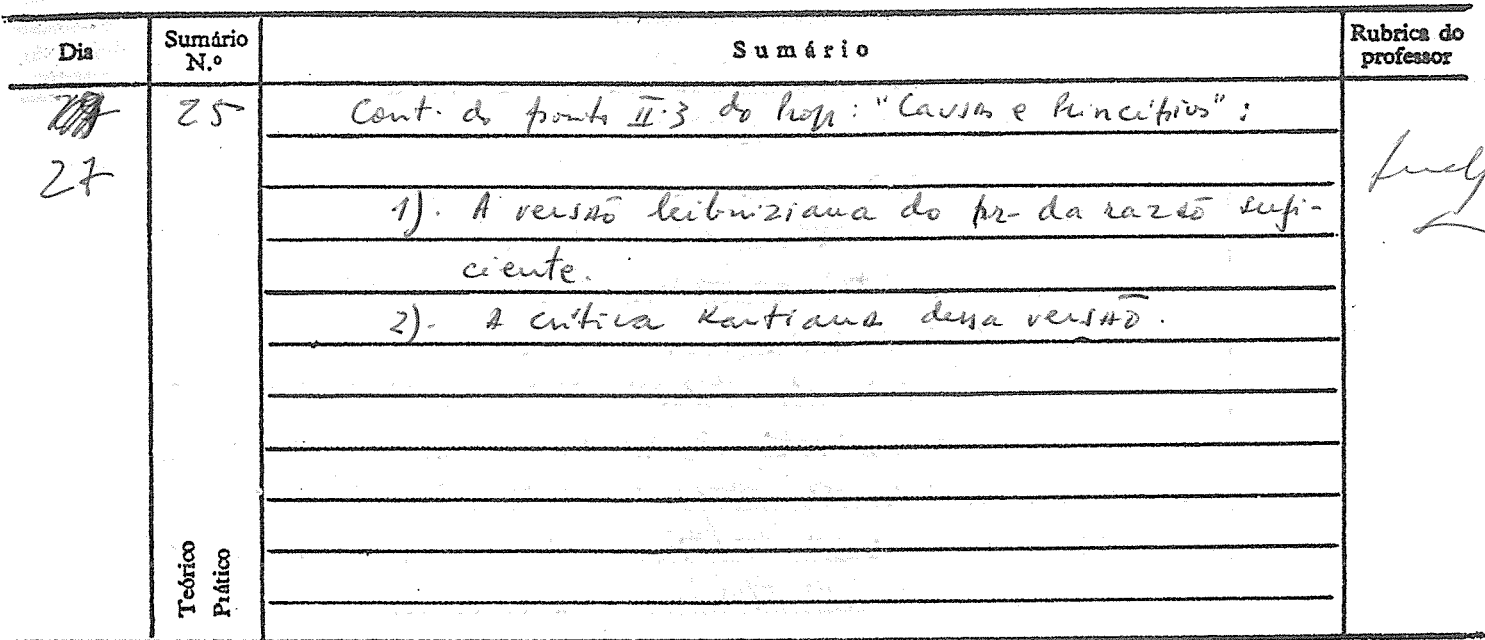 Dia
Sumário N.º
Sumário
Rubrica do professor
27
25
Cont. do ponto II.3 do Progr: "Causas e Princípios":
1). A versão leibniziana do pr. da razão sufi-
ciente.
2). A crítica Kantiana dessa versão.
Teórico
Prático